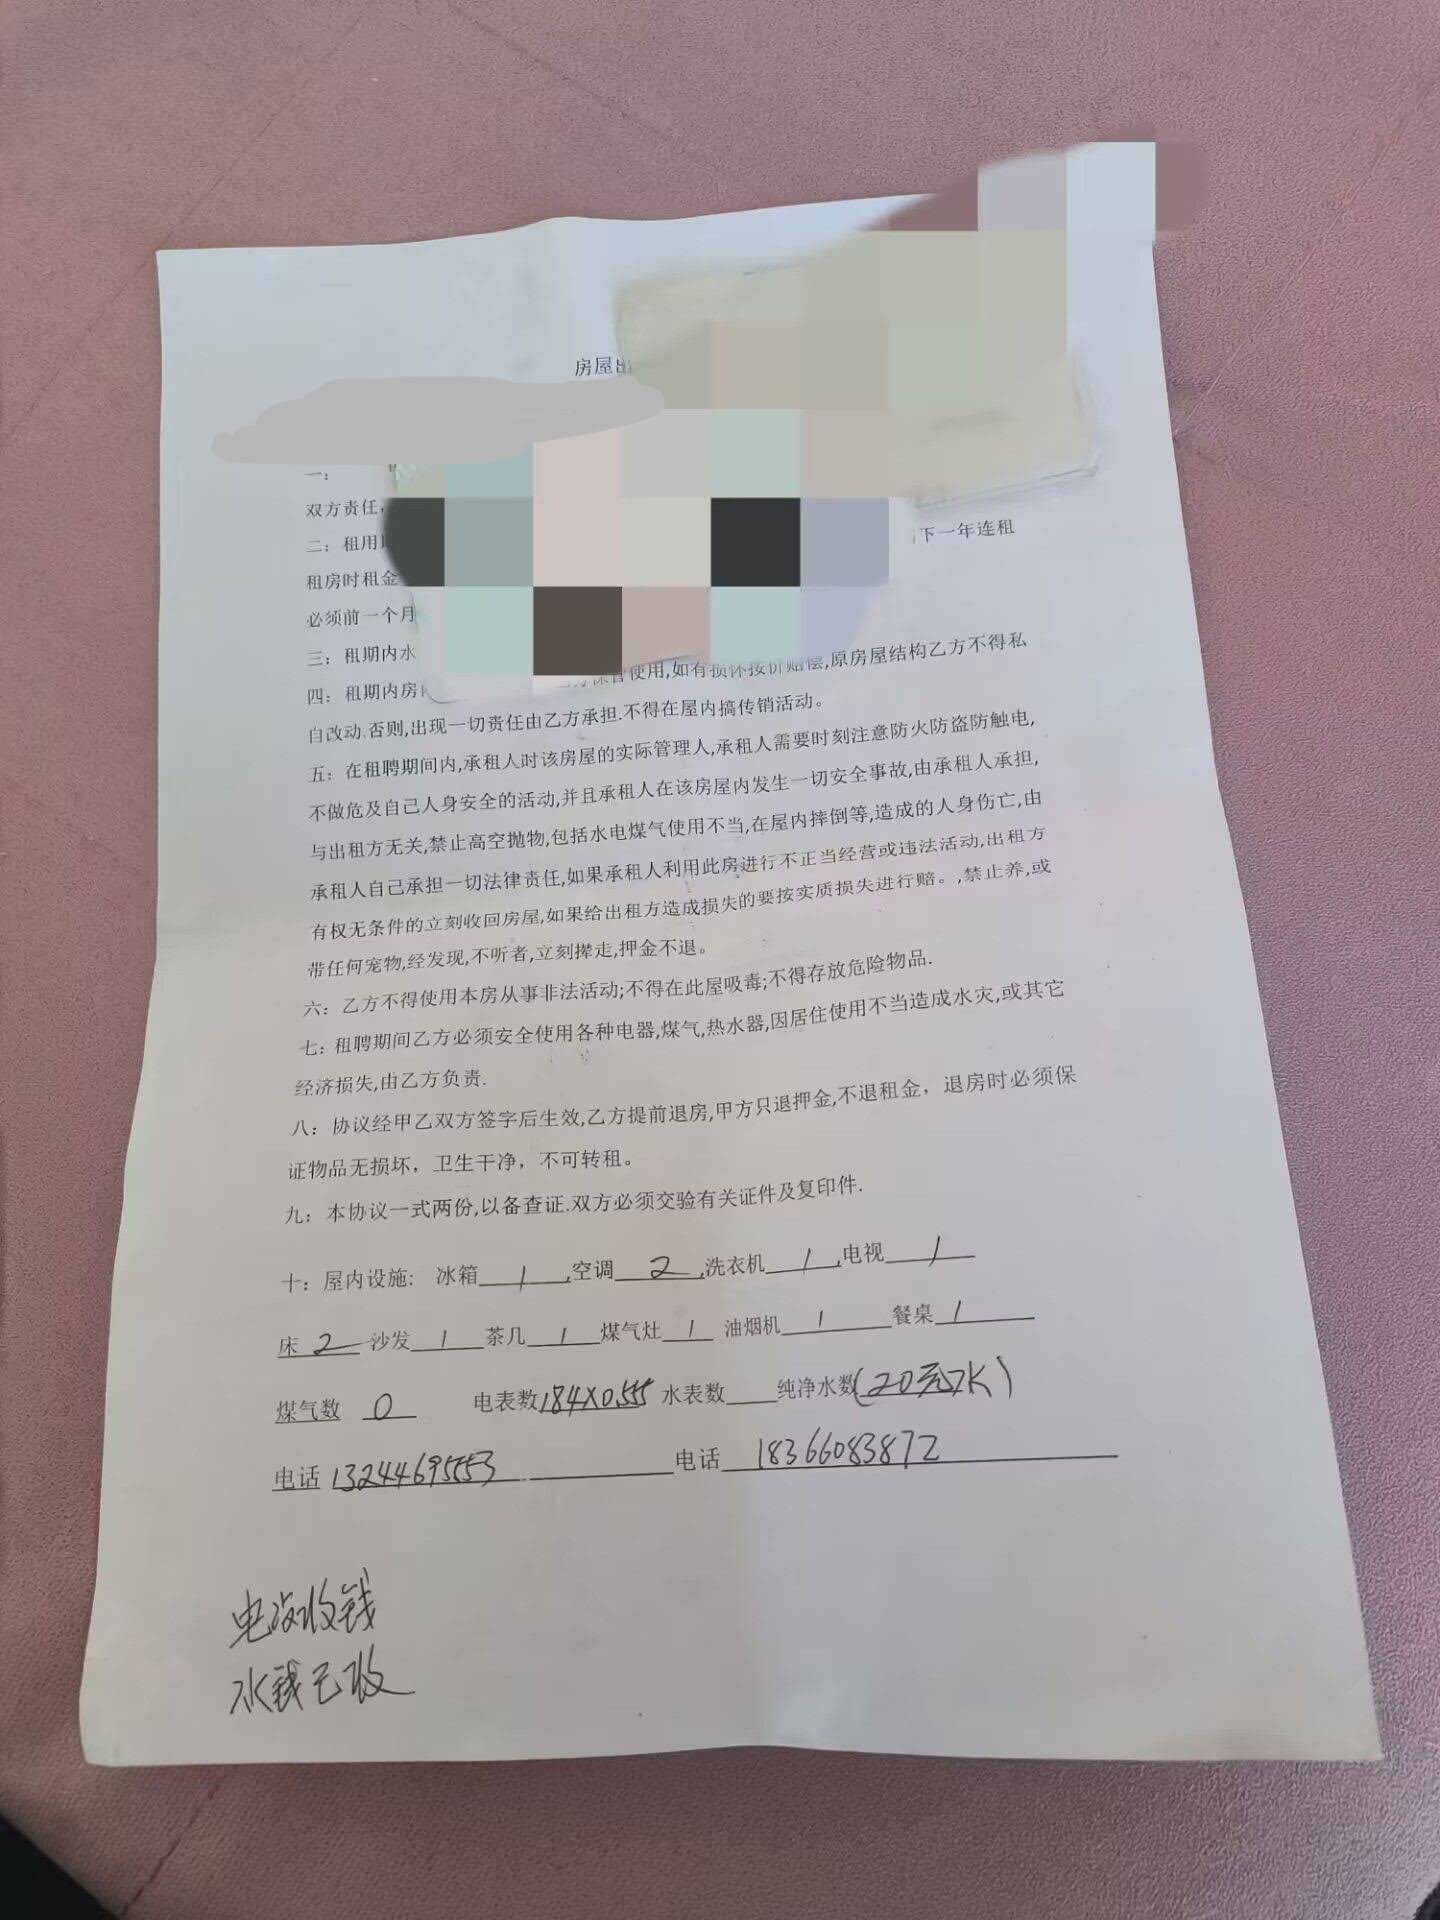 房屋出
一:
双方责任,
二: 租用 下一年连租
租房时租金
必须前一个月
三: 租期内水
四: 租期内房 保管使用,如有损怀按价赔偿,原房屋结构乙方不得私
自改动.否则,出现一切责任由乙方承担.不得在屋内搞传销活动。
五: 在租聘期间内,承租人时该房屋的实际管理人,承租人需要时刻注意防火防盗防触电,
不做危及自己人身安全的活动,并且承租人在该房屋内发生一切安全事故,由承租人承担,
与出租方无关,禁止高空抛物,包括水电煤气使用不当,在屋内摔倒等,造成的人身伤亡,由
承租人自己承担一切法律责任,如果承租人利用此房进行不正当经营或违法活动,出租方
有权无条件的立刻收回房屋,如果给出租方造成损失的要按实质损失进行赔。,禁止养,或
带任何宠物,经发现,不听者,立刻撵走,押金不退。
六: 乙方不得使用本房从事非法活动;不得在此屋吸毒;不得存放危险物品.
七: 租聘期间乙方必须安全使用各种电器,煤气,热水器,因居住使用不当造成水灾,或其它
经济损失,由乙方负责.
八: 协议经甲乙双方签字后生效,乙方提前退房,甲方只退押金,不退租金，退房时必须保
证物品无损坏，卫生干净，不可转租。
九: 本协议一式两份,以备查证.双方必须交验有关证件及复印件.
十: 屋内设施: 冰箱 1 ,空调 2 ,洗衣机 1 ,电视 1
床 2 沙发 1 茶几 1 煤气灶 1 油烟机 1 餐桌 1
煤气数 0 电表数184×0.555 水表数 纯净水数(20元水)
电话 13244695553 电话 18366083872
电没收钱
水钱已收